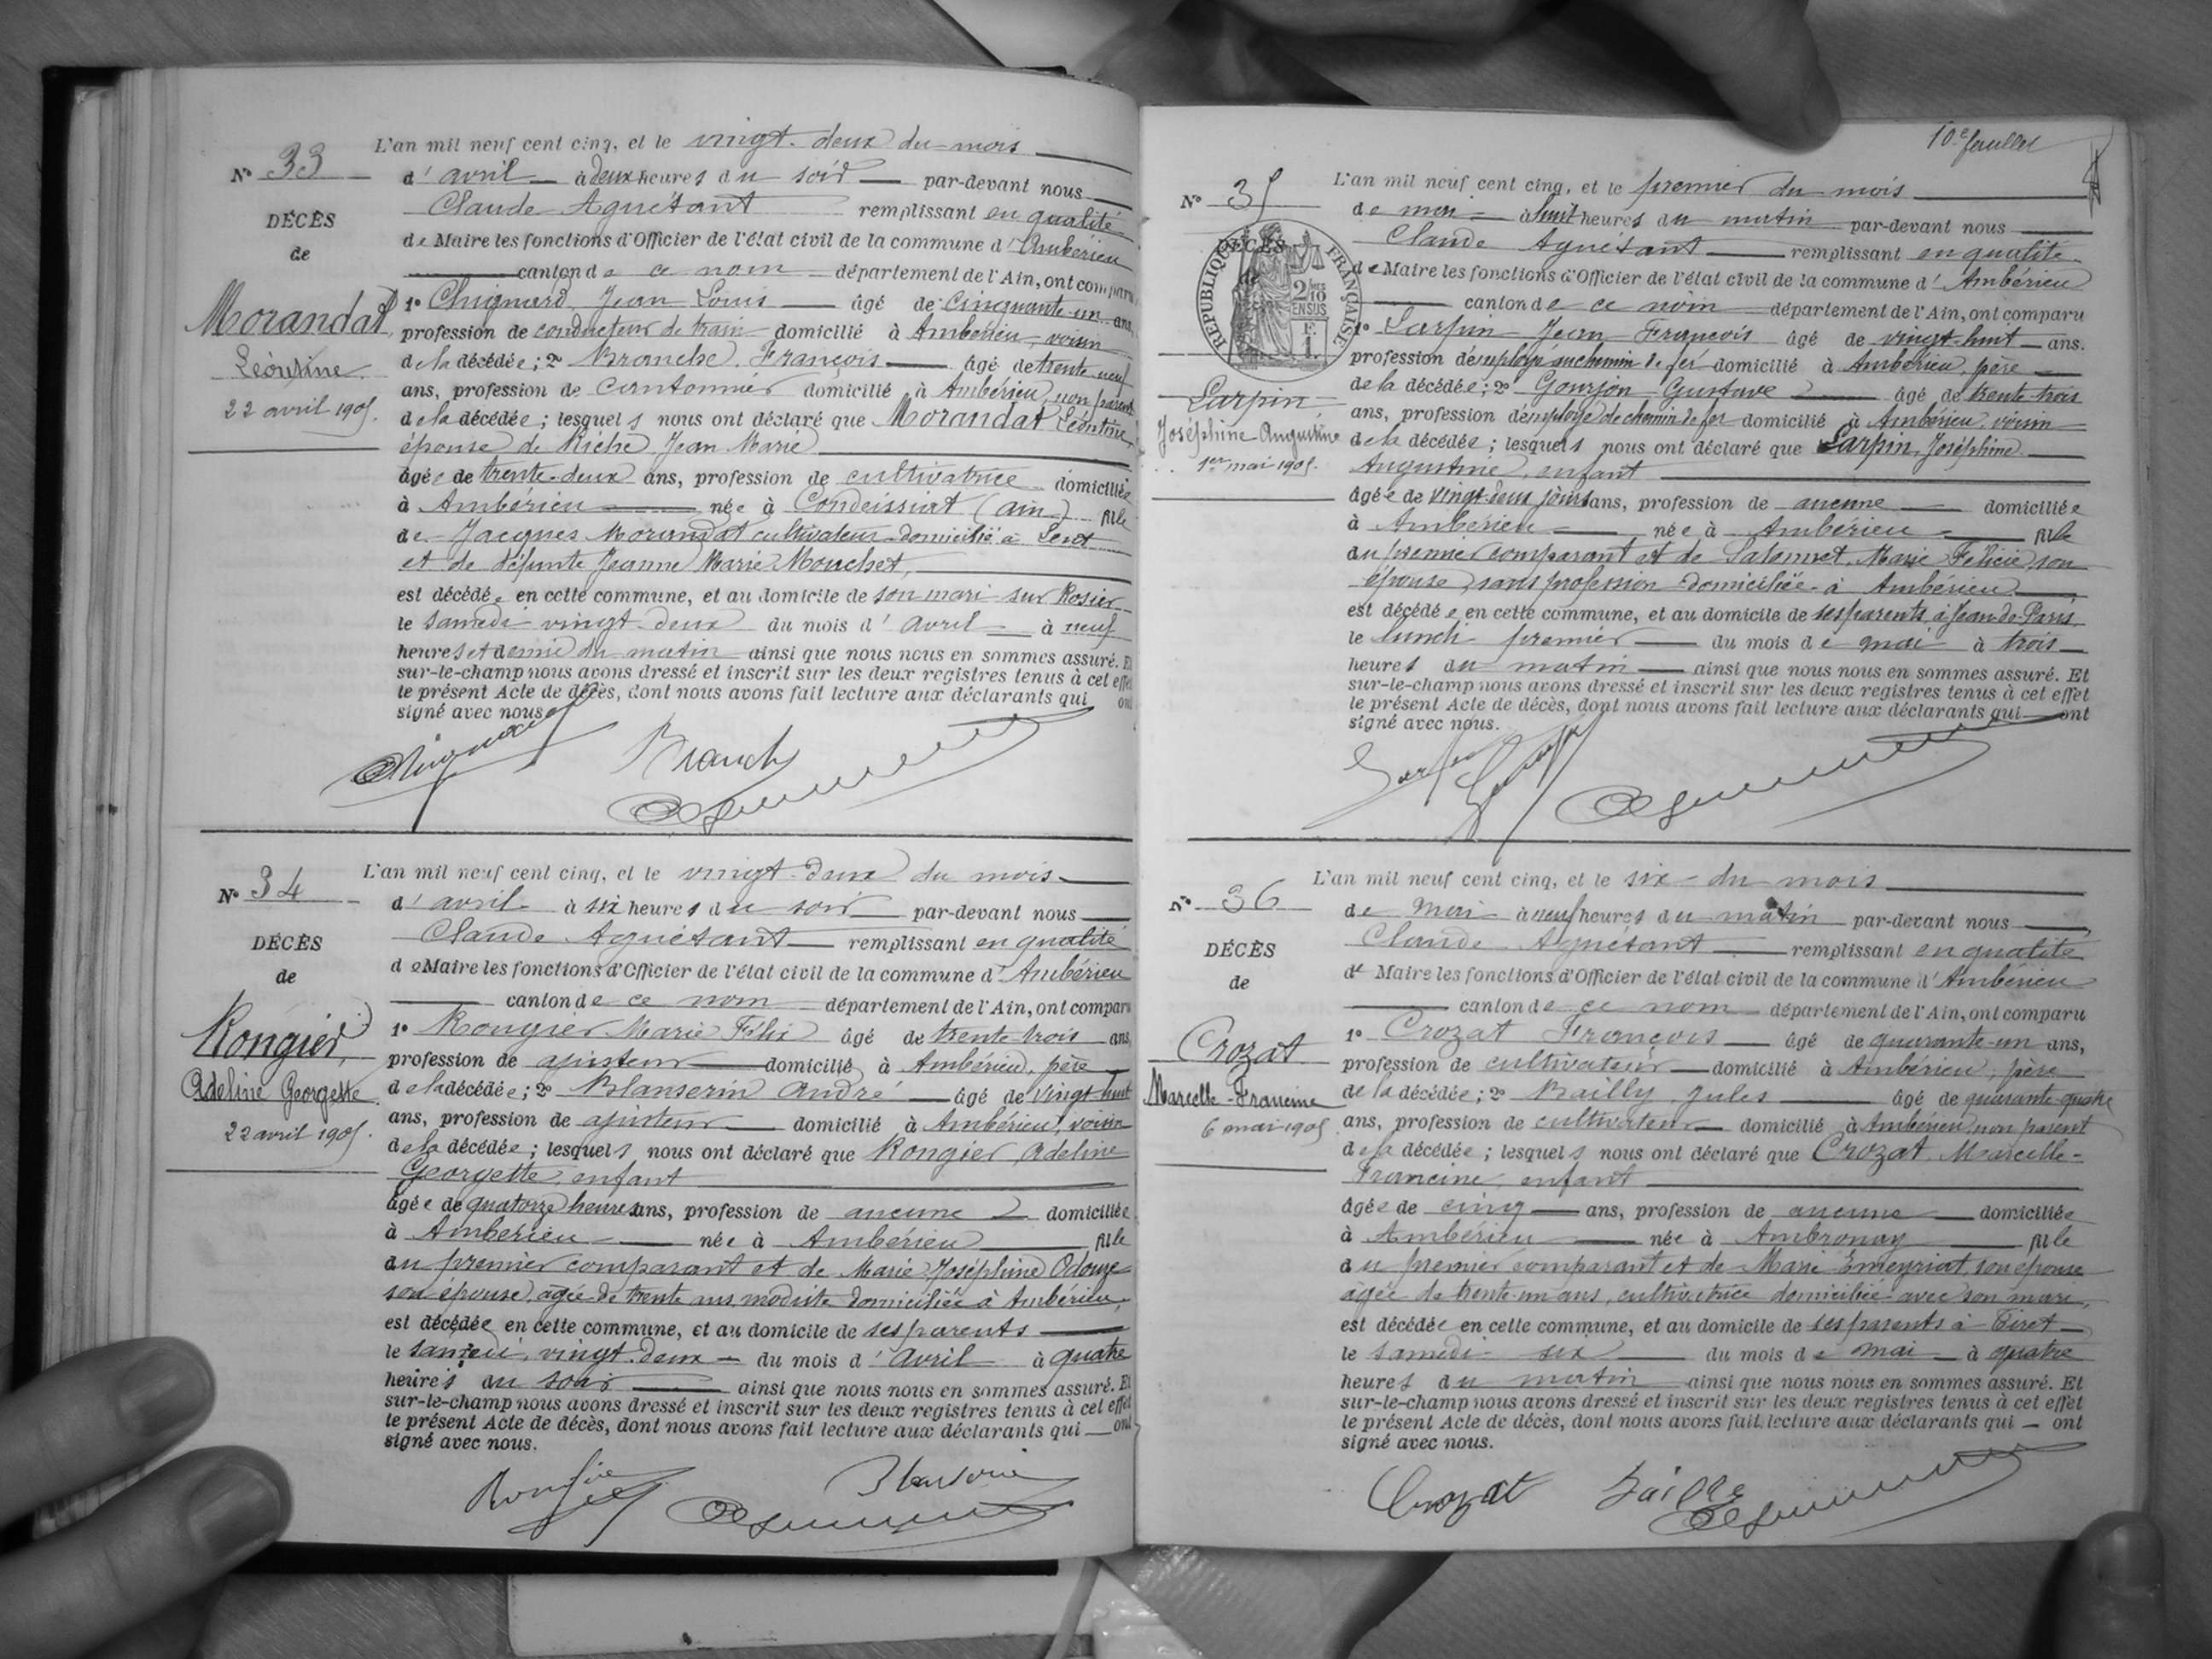 L'an mil neuf cent cinq, et le vingt-deux du mois
N° 33
d'avril à deux heures du soir par-devant nous
Claude Aguétant remplissant en qualité
DÉCÈS
de Maire les fonctions d'Officier de l'état civil de la commune d'Ambérieu
de
canton de ce nom département de l'Ain, ont comparu
Morandat
1° Chignard, Jean Louis âgé de Cinquante-un ans,
profession de conducteur de train domicilié à Ambérieu, voisin
Léontine
de la décédée; 2° Branche François âgé de trente neuf
22 avril 1905.
ans, profession de Cantonnier domicilié à Ambérieu, non parent
de la décédée; lesquels nous ont déclaré que Morandat Léontine,
épouse de Riche Jean Marie
âgée de trente-deux ans, profession de cultivatrice domiciliée
à Ambérieu née à Condeissiat (ain) fille
de Jacques Morandat cultivateur domicilié à Lent
et de défunte Jeanne Marie Mouchet,
est décédée en cette commune, et au domicile de son mari sur Rosier
le samedi vingt-deux du mois d'avril à neuf
heures et demie du matin ainsi que nous nous en sommes assuré. Et
sur-le-champ nous avons dressé et inscrit sur les deux registres tenus à cet effet
le présent Acte de décès, dont nous avons fait lecture aux déclarants qui ont
signé avec nous.
Chignard Branche
L'an mil neuf cent cinq, et le vingt-deux du mois
N° 34
d'avril à six heures du soir par-devant nous
Claude Aguétant remplissant en qualité
DÉCÈS
de Maire les fonctions d'Officier de l'état civil de la commune d'Ambérieu
de
canton de ce nom département de l'Ain, ont comparu
Rongier,
1° Rongier Marie Félix âgé de trente-trois ans,
profession de ajusteur domicilié à Ambérieu, père
Adeline Georgette
de la décédée; 2° Blanserin André âgé de vingt-huit
22 avril 1905.
ans, profession de ajusteur domicilié à Ambérieu, voisin
de la décédée; lesquels nous ont déclaré que Rongier, Adeline
Georgette, enfant
âgée de quatorze heures ans, profession de aucune domiciliée
à Ambérieu née à Ambérieu fille
du premier comparant et de Marie Joséphine Odouze
son épouse, âgée de trente ans, modiste domiciliée à Ambérieu,
est décédée en cette commune, et au domicile de ses parents
le samedi, vingt-deux du mois d'avril à quatre
heures du soir ainsi que nous nous en sommes assuré. Et
sur-le-champ nous avons dressé et inscrit sur les deux registres tenus à cet effet
le présent Acte de décès, dont nous avons fait lecture aux déclarants qui ont
signé avec nous.
Rongier
10e feuillet
L'an mil neuf cent cinq, et le premier du mois
N° 35
de mai à huit heures du matin par-devant nous
Claude Aguétant remplissant en qualité
DÉCÈS
de
RÉPUBLIQUE FRANÇAISE
2/10 EN SUS
de Maire les fonctions d'Officier de l'état civil de la commune d'Ambérieu
canton de ce nom département de l'Ain, ont comparu
1° Larpin Jean François âgé de vingt-huit ans.
profession d'employé au chemin de fer domicilié à Ambérieu, père
Larpin,
de la décédée; 2° Gourjon Gustave âgé de trente-trois
Joséphine Augustine
ans, profession d'employé de chemin de fer domicilié à Ambérieu, voisin
1er mai 1905.
de la décédée; lesquels nous ont déclaré que Larpin, Joséphine
Augustine, enfant
âgée de vingt-deux jours ans, profession de aucune domiciliée
à Ambérieu née à Ambérieu fille
du premier comparant et de Marie Felicie son
épouse, sans profession domiciliée à Ambérieu
est décédée en cette commune, et au domicile de ses parents, à Jean-de-Paris
le lundi premier du mois de mai à trois
heures du matin ainsi que nous nous en sommes assuré. Et
sur-le-champ nous avons dressé et inscrit sur les deux registres tenus à cet effet
le présent Acte de décès, dont nous avons fait lecture aux déclarants qui ont
signé avec nous.
L'an mil neuf cent cinq, et le six du mois
N° 36
de mai à neuf heures du matin par-devant nous
Claude Aguétant remplissant en qualité
DÉCÈS
de Maire les fonctions d'Officier de l'état civil de la commune d'Ambérieu
de
canton de ce nom département de l'Ain, ont comparu
Crozat
1° Crozat François âgé de quarante-un ans,
profession de cultivateur domicilié à Ambérieu, père
Marcelle-Francine
de la décédée; 2° Bailly Jules âgé de quarante-quatre
6 mai 1905
ans, profession de cultivateur domicilié à Ambérieu, non parent
de la décédée; lesquels nous ont déclaré que Crozat, Marcelle-
Francine, enfant
âgée de cinq ans, profession de aucune domiciliée
à Ambérieu née à Ambronay fille
du premier comparant et de Marie Emeyriat, son épouse
âgée de trente-un ans, cultivatrice domiciliée avec son mari,
est décédée en cette commune, et au domicile de ses parents à Tiret
le samedi six du mois de mai à quatre
heures du matin ainsi que nous nous en sommes assuré. Et
sur-le-champ nous avons dressé et inscrit sur les deux registres tenus à cet effet
le présent Acte de décès, dont nous avons fait lecture aux déclarants qui ont
signé avec nous.
Crozat